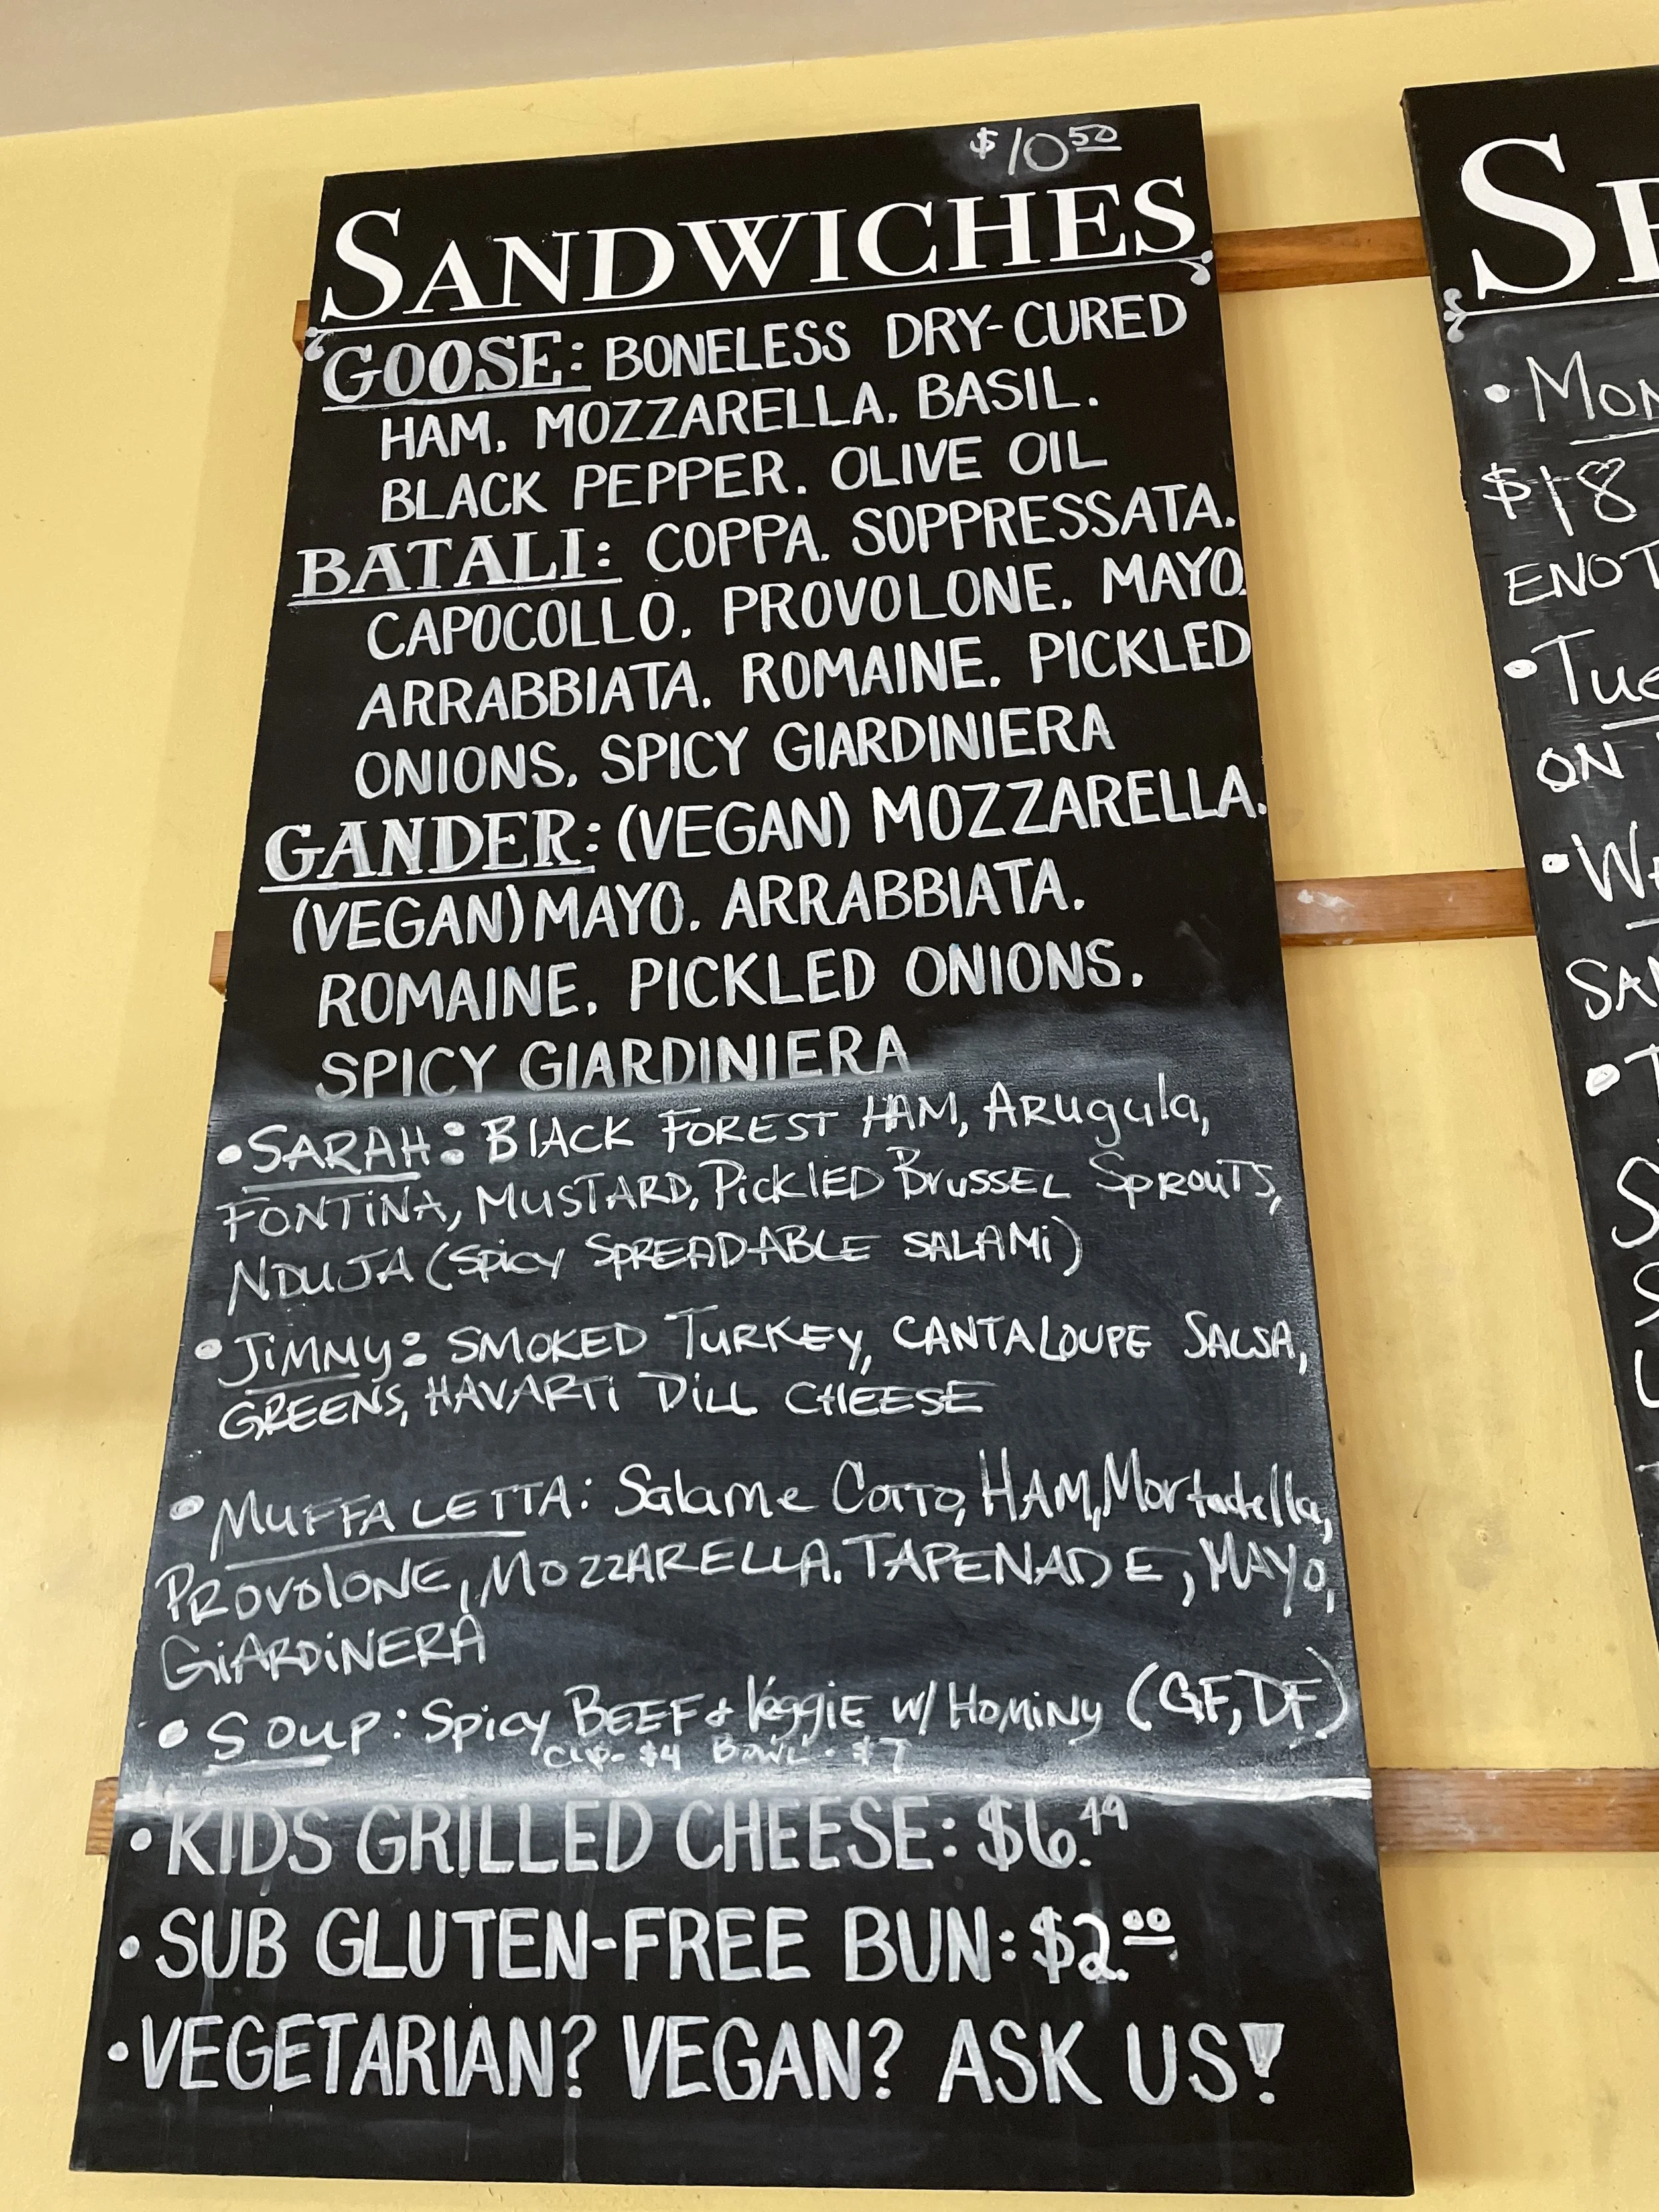 $10.50
SANDWICHES
GOOSE: BONELESS DRY-CURED
HAM, MOZZARELLA, BASIL,
BLACK PEPPER, OLIVE OIL
BATALI: COPPA, SOPPRESSATA,
CAPOCOLLO, PROVOLONE, MAYO,
ARRABBIATA, ROMAINE, PICKLED
ONIONS, SPICY GIARDINIERA
GANDER: (VEGAN) MOZZARELLA,
(VEGAN) MAYO, ARRABBIATA,
ROMAINE, PICKLED ONIONS,
SPICY GIARDINIERA
• SARAH: BLACK FOREST HAM, ARugula,
FONTiNA, MUSTARD, PicklED BrussEL SPROUTS,
NDUJA (Spicy SPREADABLE SALAMi)
• JiMMy: SMOKED TURKEy, CANTALOUPE SALSA,
GREENS, HAVARTi DiLL CHEESE
• MUFFALETTA: Salame Cotto, HAM, Mortadella,
PROVOlONE, MOZZARELLA, TAPENADE, MAYO,
GiARDiNERA
• SOUP: Spicy BEEF & VeggiE W/ HOMiNy (GF, DF)
CUP - $4 BOWL - $7
• KIDS GRILLED CHEESE: $6.49
• SUB GLUTEN-FREE BUN: $2.00
• VEGETARIAN? VEGAN? ASK US!
$18
ON